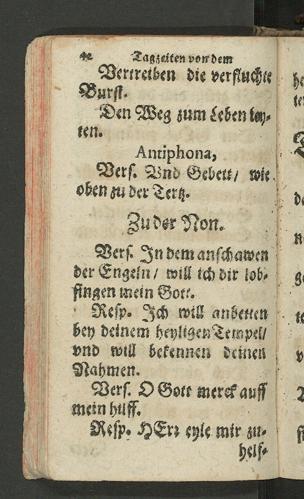 42 Tagzeiten von dem
Vertreiben die verfluchte
Burst.
Den Weg zum Leben ley-
ten.
Antiphona,
Vers. Vnd Gebett / wie
oben zu der Tertz.
Zu der Non.
Vers. In dem anschawen
der Engeln / will ich dir lob-
singen mein Gott.
Resp. Ich will anbetten
bey deinem heyligen Tempel/
vnd will bekennen deinen
Nahmen.
Vers. O Gott merck auff
mein hilff.
Resp. HErr eyle mir zu-
helf-